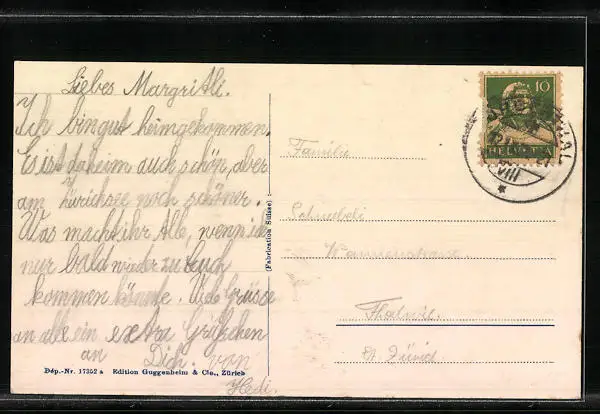 Liebes Margritli.
Ich bin gut heimgekommen.
Es ist daheim auch schön, aber
am Zürichsee noch schöner.
Was macht ihr alle, wenn ich
nur bald wieder zu Euch
kommen könnte. Viele Grüsse
an alle ein extra Grüsschen
an Dich. von
Hedi.
Familie
Schneebeli
Thalwil.
Kt. Zürich
(Fabrication Suisse)
Dép.-Nr. 17352 a Edition Guggenheim & Cie., Zürich
10
HELVETIA
VIII